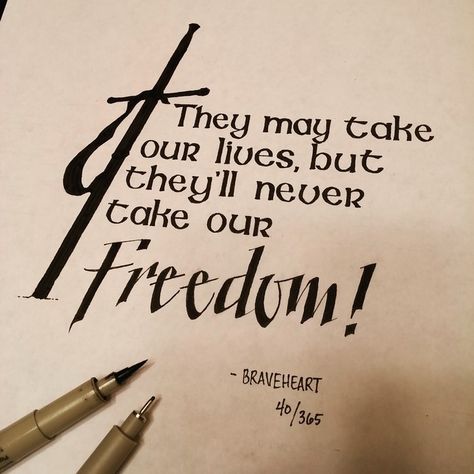 They may take
our lives, but
they'll never
take our
Freedom!
- BRAVEHEART
40/365